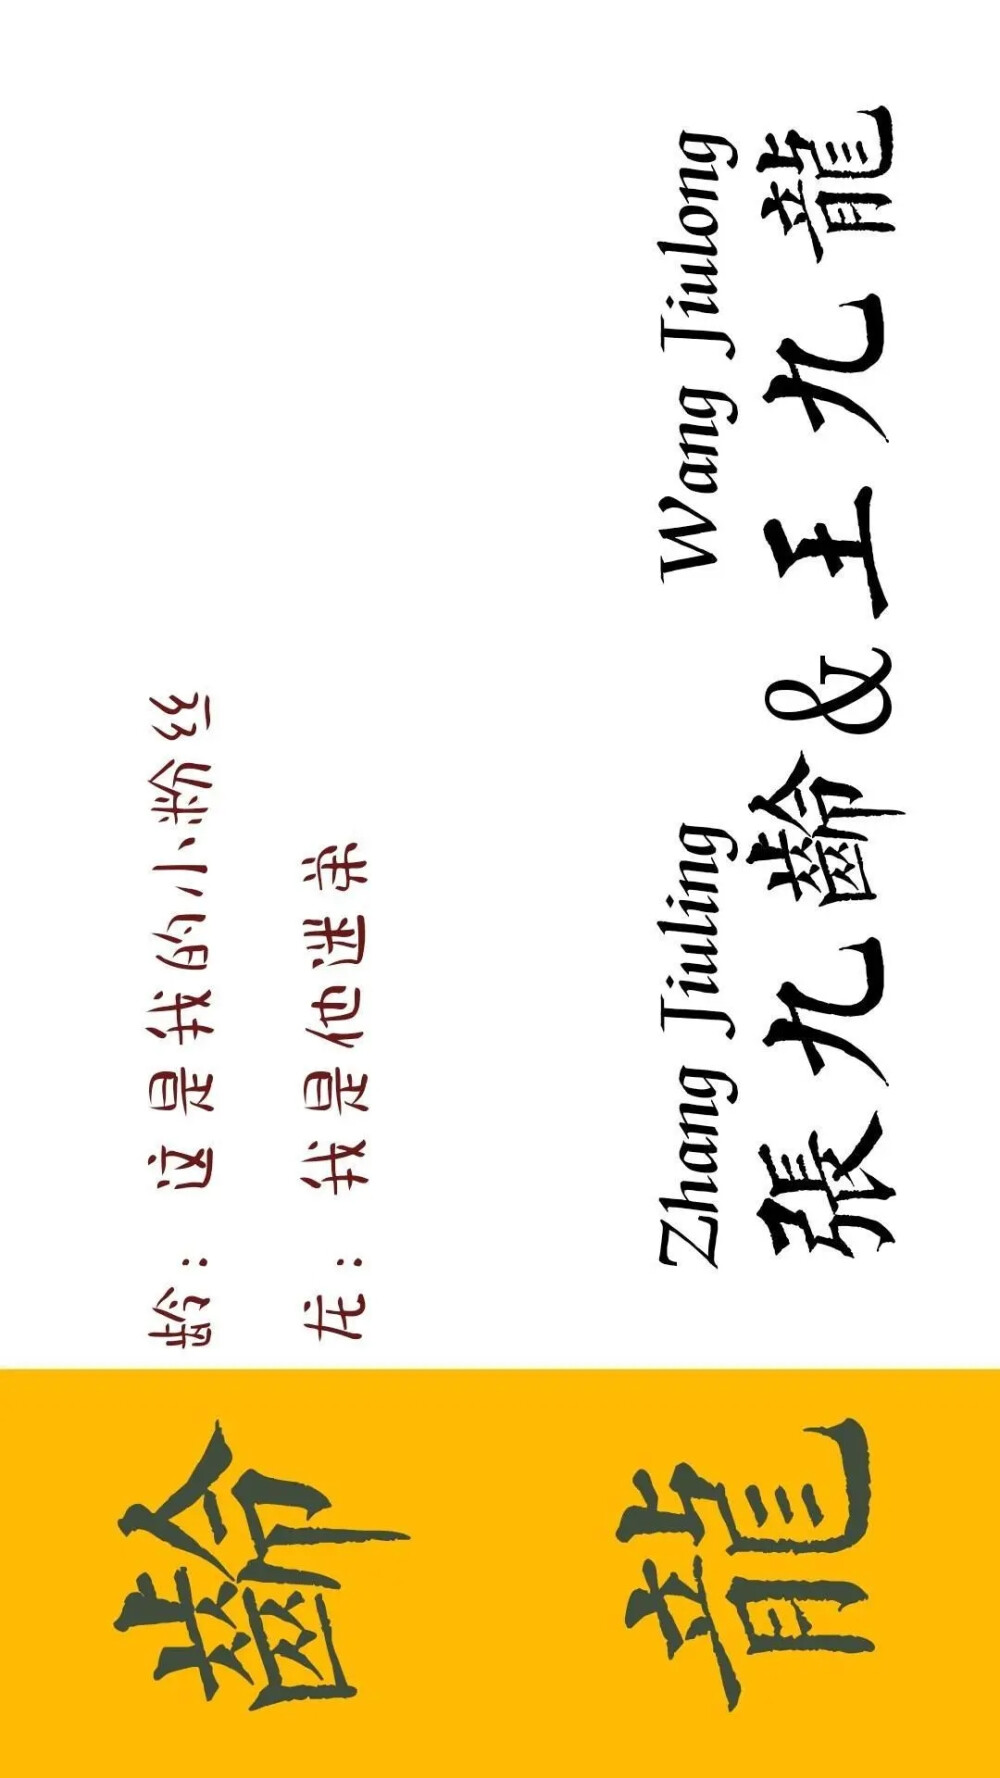 齡
龍
龄：这是我的小粉丝
龙：我是他迷弟
Zhang Jiuling Wang Jiulong
張九齡&王九龍